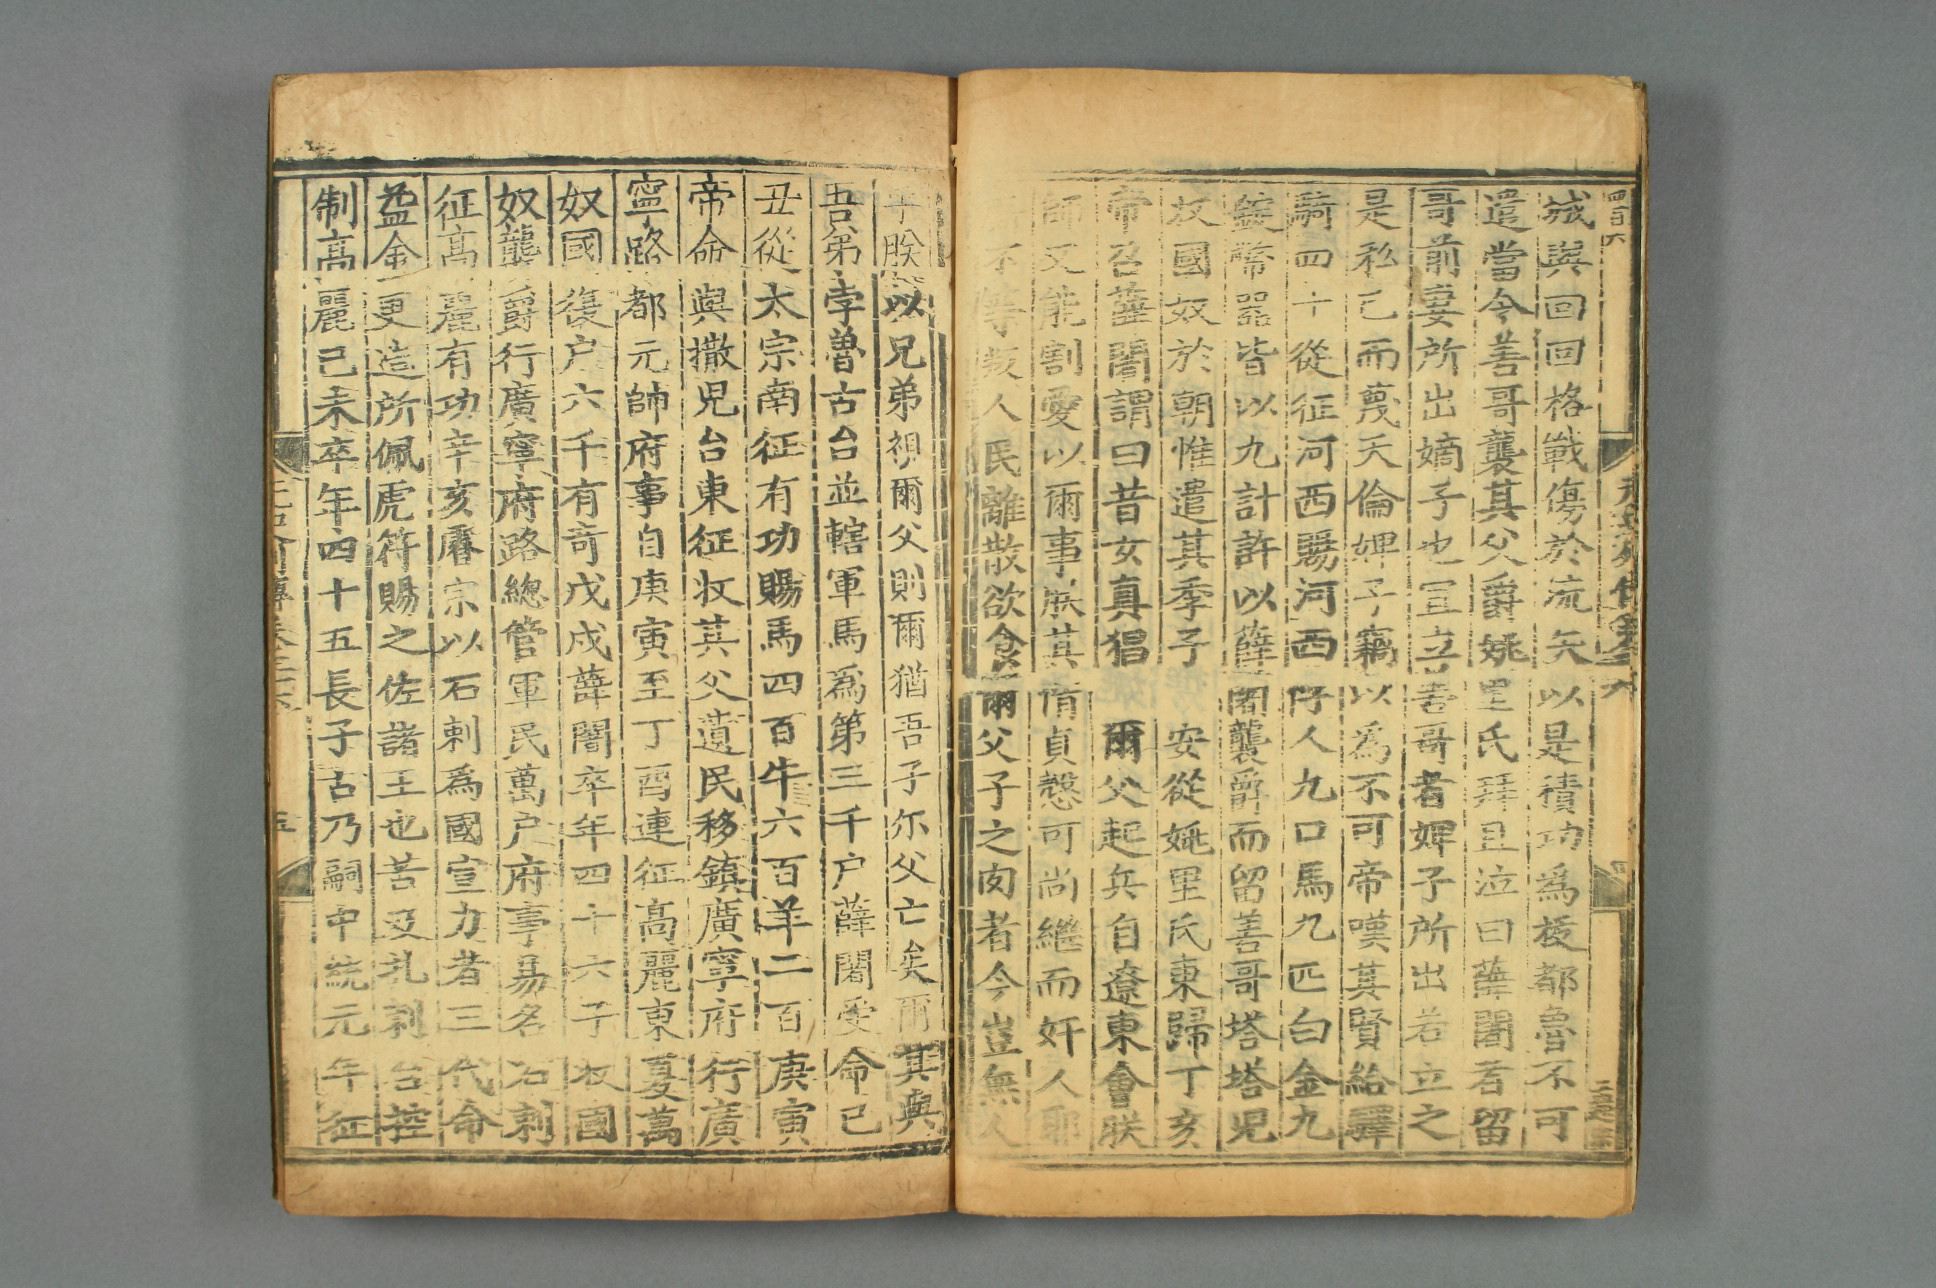 城與回回格戰傷於流矢以是積功爲拔都魯不可
遣當令善哥襲其父爵姚里氏拜且泣曰薛闍者留
哥前妻所出嫡子也宜立善哥者婢子所出若立之
是私己而蔑天倫婢子竊以爲不可帝嘆其賢給驛
騎四十從征河西賜河西俘人九口馬九匹白金九
錠幣器皆以九計許以薛闍襲爵而留善哥塔塔児
收國奴於朝惟遣其季子 安從姚里氏東歸丁亥
帝召薛闍謂曰昔女真猖 爾父起兵自遼東會朕
師又能割愛以爾事朕其情貞慤可尚繼而奸人耶
不等叛人民離散欲食爾父子之肉者今豈無人
乎朕以兄弟視爾父則爾猶吾子尔父亡矣爾其與
吾弟孛魯古台並轄軍馬爲第三千户薛闍受命己
丑從太宗南征有功賜馬四百牛六百羊二百庚寅
帝命與撒児台東征收其父遺民移鎮廣寧府行廣
寧路都元帥府事自庚寅至丁酉連征高麗東夏萬
奴國復户六千有奇戊戌薛闍卒年四十六子收國
奴襲爵行廣寧府路總管軍民萬户府事易名石剌
征高麗有功辛亥睿宗以石剌爲國宣力者三代命
益金更造所佩虎符賜之佐諸王也苦及札剌台控
制高麗己未卒年四十五長子古乃嗣中統元年征